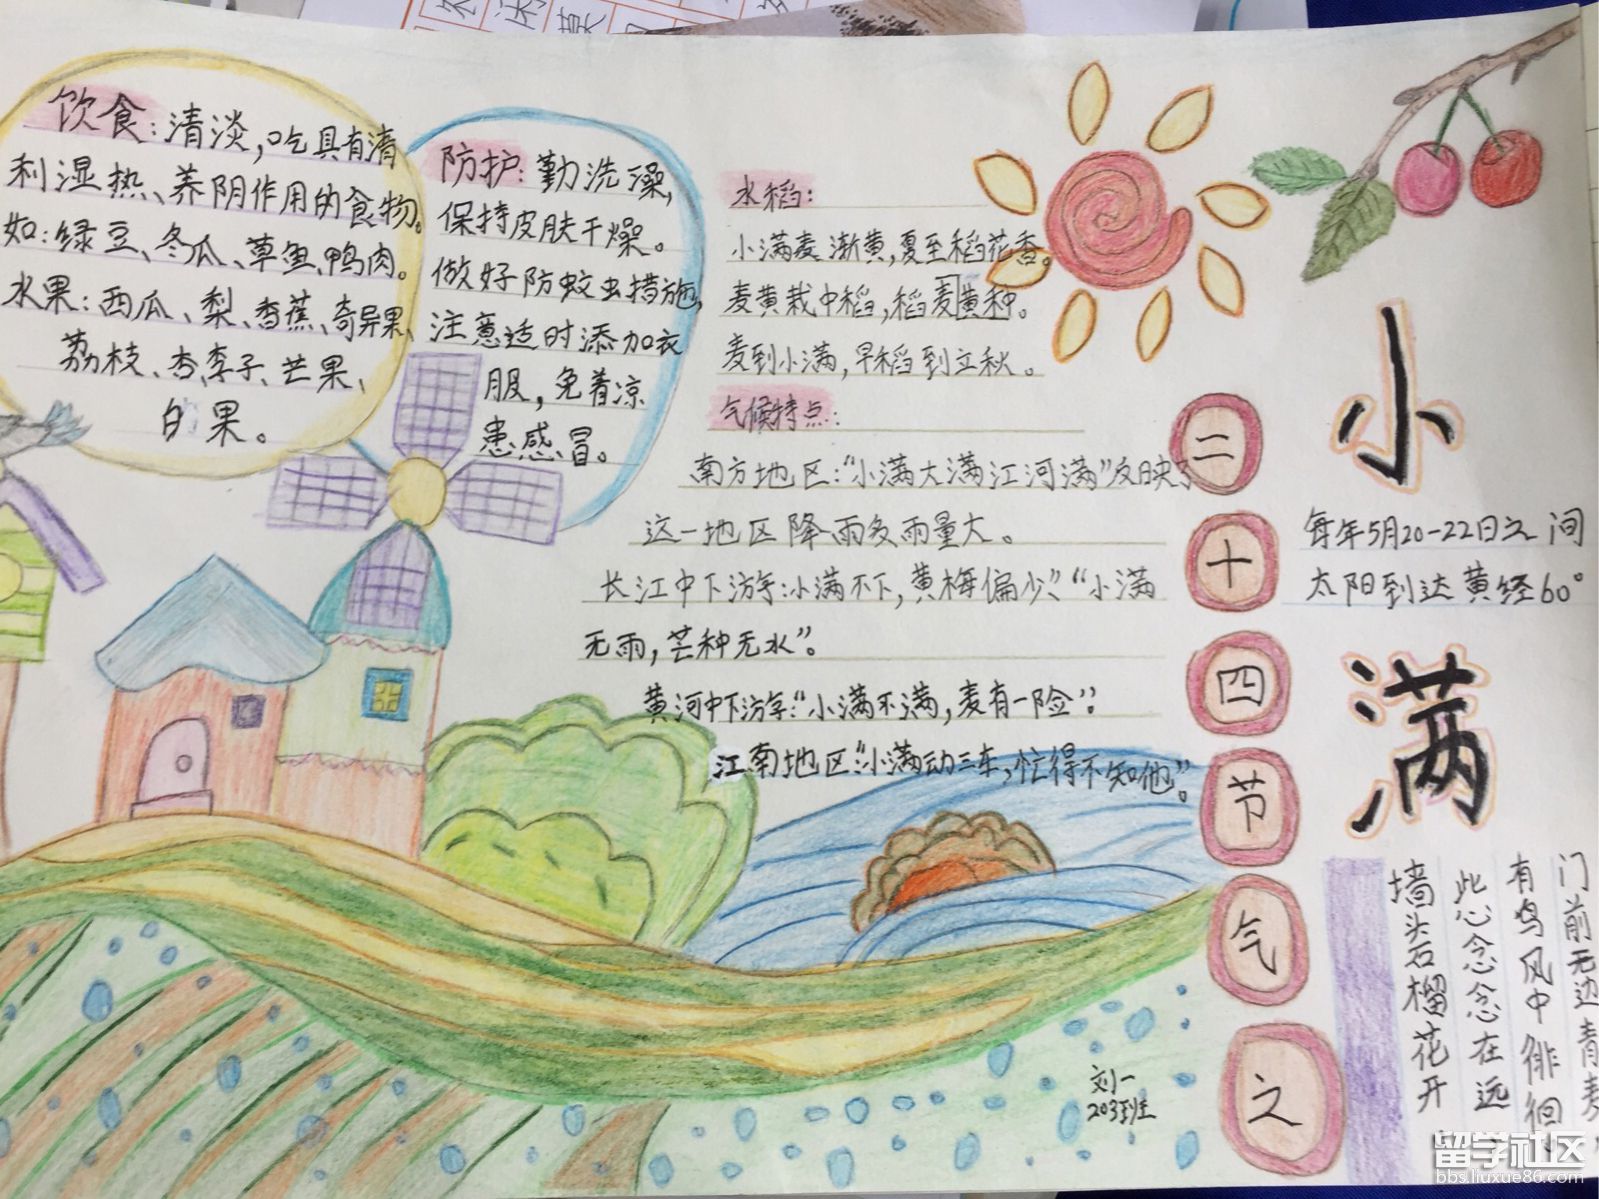 饮食:清淡,吃具有清
利湿热、养阴作用的食物。
如:绿豆、冬瓜、草鱼、鸭肉。
水果:西瓜、梨、香蕉、奇异果、
荔枝、杏、李子、芒果、
的果。
防护:勤洗澡,
保持皮肤干燥。
做好防蚊虫措施,
注意适时添加衣
服,免着凉
患感冒。
水稻:
小满麦渐黄,夏至稻花香。
麦黄栽中稻,稻麦黄种。
麦到小满,早稻到立秋。
气候特点:
南方地区:“小满大满江河满”反映了
这一地区降雨多雨量大。
长江中下游:小满不下,黄梅偏少、“小满
无雨,芒种无水”。
黄河中下游:“小满不满,麦有一险”。
江南地区“小满动三车,忙得不知他”。
二
十
四
节
气
之
小
每年5月20-22日之间
太阳到达黄经60°
满
门前无边青麦,
有鸟风中徘徊
此心念念在远
墙头石榴花开
刘一
203班
留学社区
bbs.liuxue86.com